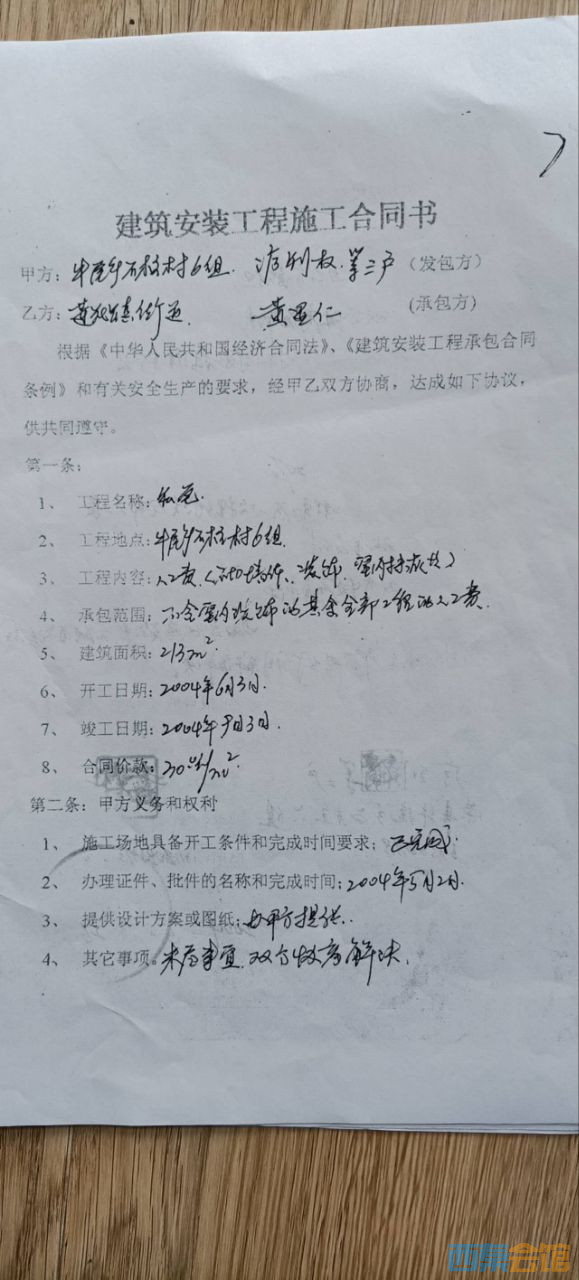 建筑安装工程施工合同书
甲方：牛尾乡石柱村6组. 第三户（发包方）
乙方： 黄显仁 (承包方)
根据《中华人民共和国经济合同法》、《建筑安装工程承包合同
条例》和有关安全生产的要求，经甲乙双方协商，达成如下协议，
供共同遵守。
第一条：
1、 工程名称：私宅.
2、 工程地点：牛尾乡石柱村6组.
3、 工程内容：人工费
4、 承包范围：不含室内装饰的其余全部工程的人工费.
5、 建筑面积：213m².
6、 开工日期：2004年6月3日.
7、 竣工日期：2004年9月3日.
8、 合同价款：/m²
第二条：甲方义务和权利
1、 施工场地具备开工条件和完成时间要求：已完成.
2、 办理证件、批件的名称和完成时间：2004年5月2日.
3、 提供设计方案或图纸：由甲方提供.
4、 其它事项。未尽事宜.双方协商解决.
西景会馆